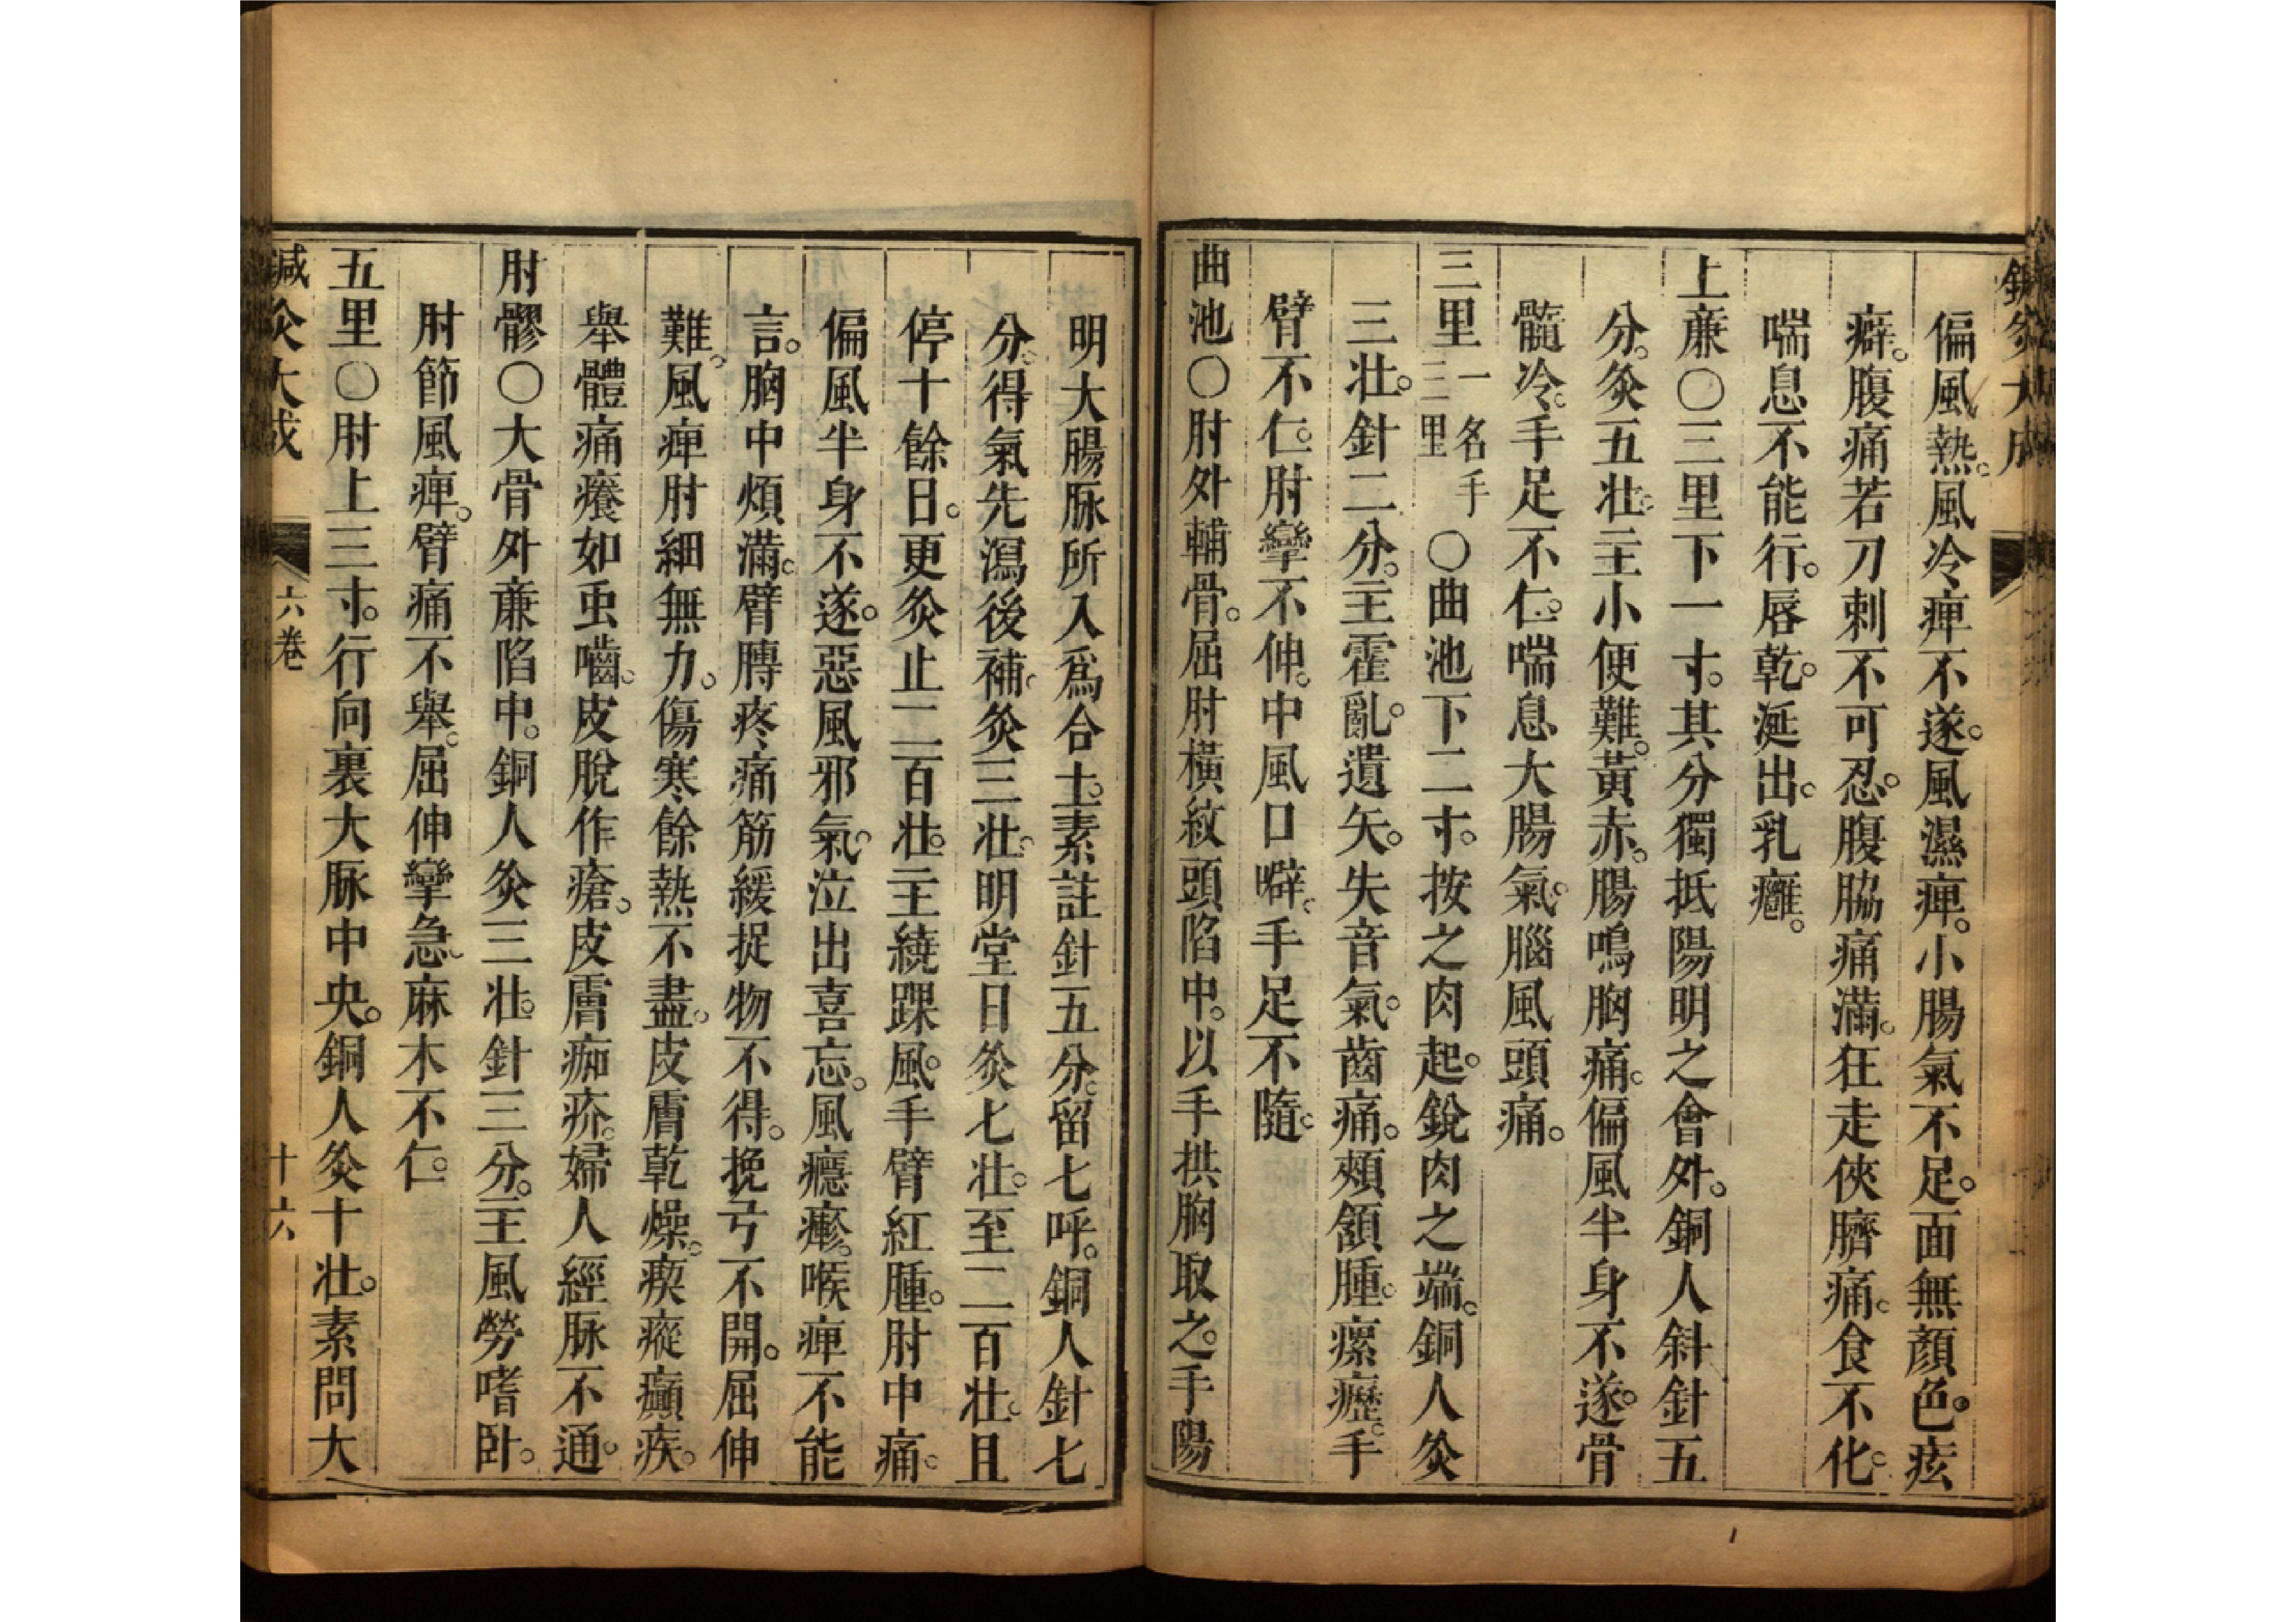 偏風熱。風冷痺不遂。風濕痺。小腸氣不足。面無顏色。痃
癖。腹痛若刀刺不可忍。腹脇痛滿。狂走俠臍痛。食不化。
喘息不能行。唇乾。涎出。乳癰。
上亷〇三里下一寸。其分獨抵陽明之會外。銅人斜針五
分。灸五壯。主小便難。黃赤。腸鳴胸痛。偏風半身不遂。骨
髓冷。手足不仁。喘息大腸氣。腦風頭痛。
三里一名手三里〇曲池下二寸。按之肉起。銳肉之端。銅人灸
三壯。針二分。主霍亂。遺矢。失音氣。齒痛。頰頷腫。瘰癧。手
臂不仁。肘攣不伸。中風口噼。手足不隨。
曲池〇肘外輔骨。屈肘橫紋頭陷中。以手拱胸取之。手陽
明大腸脉所入爲合土。素註針五分。留七呼。銅人針七
分。得氣先瀉後補。灸三壯。明堂日灸七壯。至二百壯。且
停十餘日。更灸止二百壯。主繞踝風。手臂紅腫。肘中痛。
偏風半身不遂。惡風邪氣。泣出喜忘。風癮疹。喉痺不能
言。胸中煩滿。臂膊疼痛筋緩捉物不得。挽弓不開。屈伸
難。風痺肘細無力。傷寒餘熱不盡。皮膚乾燥。瘈瘲癲疾。
舉體痛癢如虫嚙。皮脫作瘡。皮膚痂疥。婦人經脉不通。
肘髎〇大骨外亷陷中。銅人灸三壯。針三分。主風勞嗜卧。
肘節風痺。臂痛不舉。屈伸攣急。麻木不仁。
五里〇肘上三寸。行向裏大脉中央。銅人灸十壯。素問大
鍼灸大成 六卷 十六